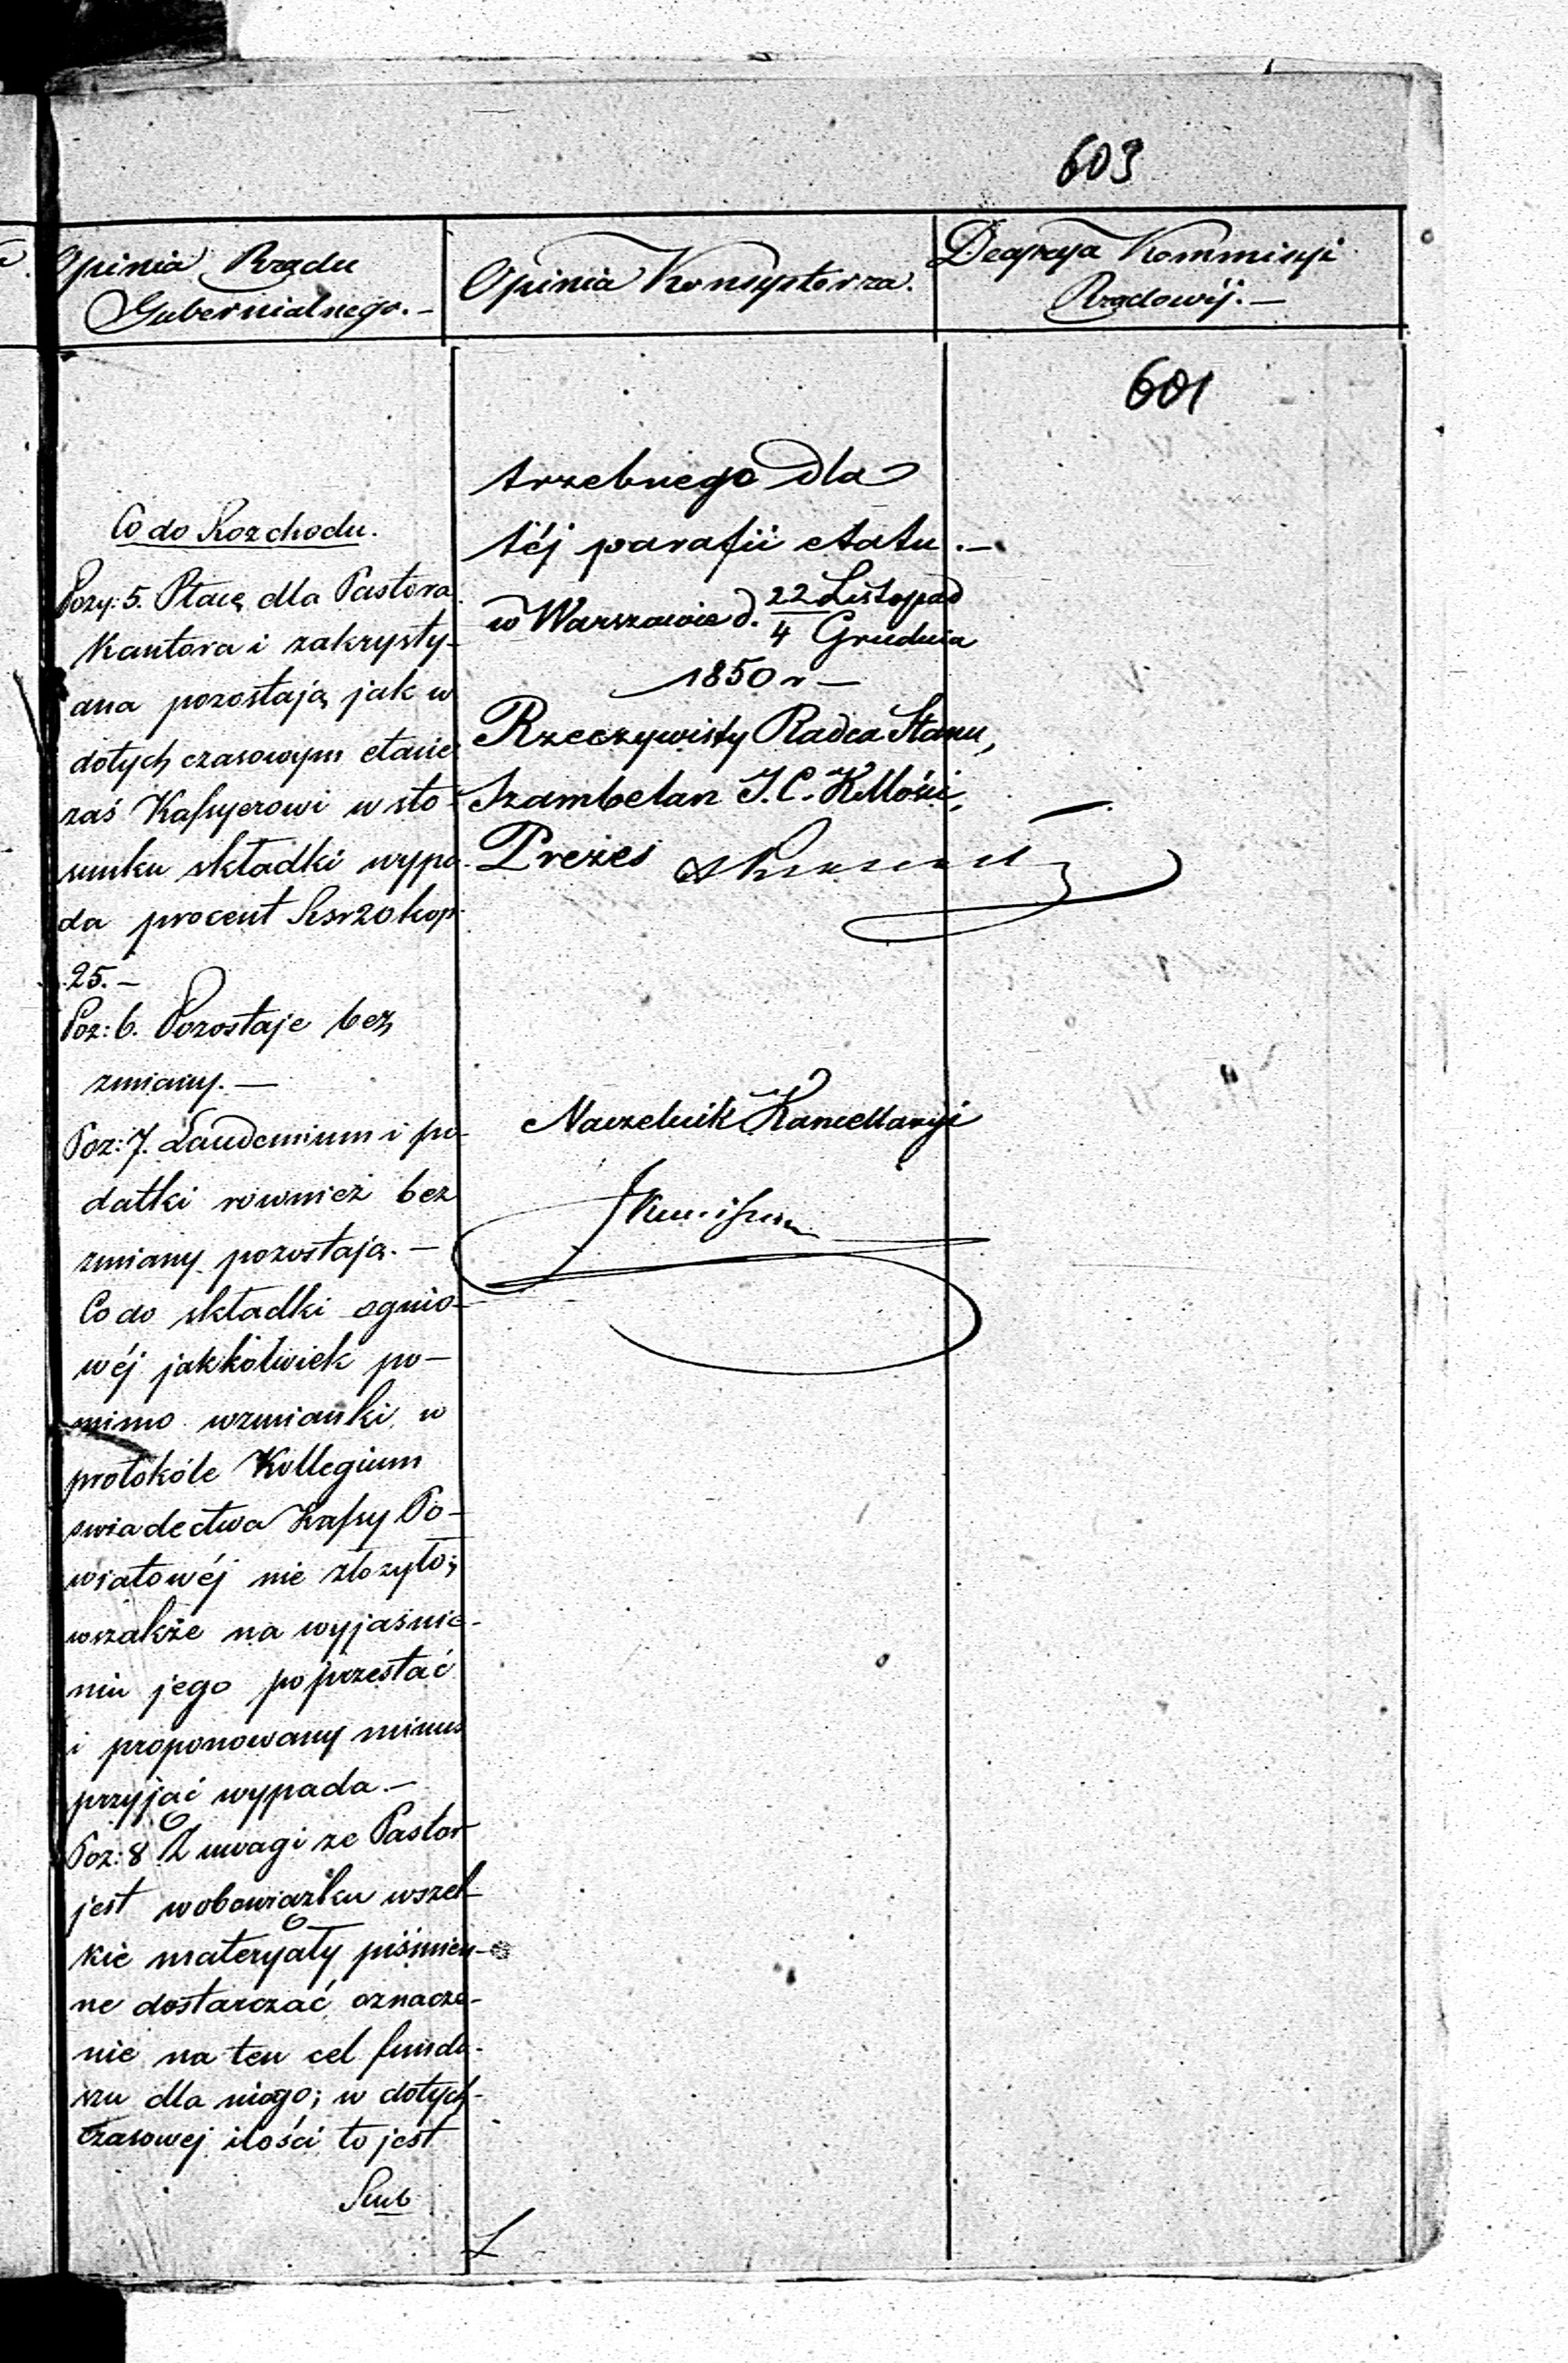 603
Opinia Rządu
Gubernialnego. —
Opinia Konsystorza.
Decyzya Kommissyi
Rządowéj. —
601
Co do Rozchodu.
Pozy: 5. Płacę dla Pastora
Kantora i zakrysty-
ana pozostają jak w
dotychczasowym etacie
zaś Kassyerowi w sto-
sunku składki wypa-
da procent Rsr 20 kop:
25. —
Poz: 6. Pozostaje bez
zmiany. —
Poz: 7. Laudemium i po-
datki rownież bez
zmiany pozostają. —
Co do składki ognio-
wéj jakkolwiek po-
mimo wzmianki w
protokóle Kollegium
swiadectwa Kassy Po-
wiatowéj nie złozyło;
wszakże na wyjaśnie-
niu jego poprzestać
i proponowany minus
przyjąć wypada. —
Poz: 8 Z uwagi ze Pastor
jest w obowiązku wszel-
kie materyały piśmien-
ne dostarczać, oznacze-
nie na ten cel fundu-
szu dla niego; w dotych-
czasowej ilości to jest
Rub
trzebnego dla
téj parafii etatu. —
w Warszawie d. 22 Listopad
4 Grudnia
1850 r —
Rzeczywisty Radca Stanu,
Szambelan J. C. K Mości,
Prezes
Naczelnik Kancellaryi